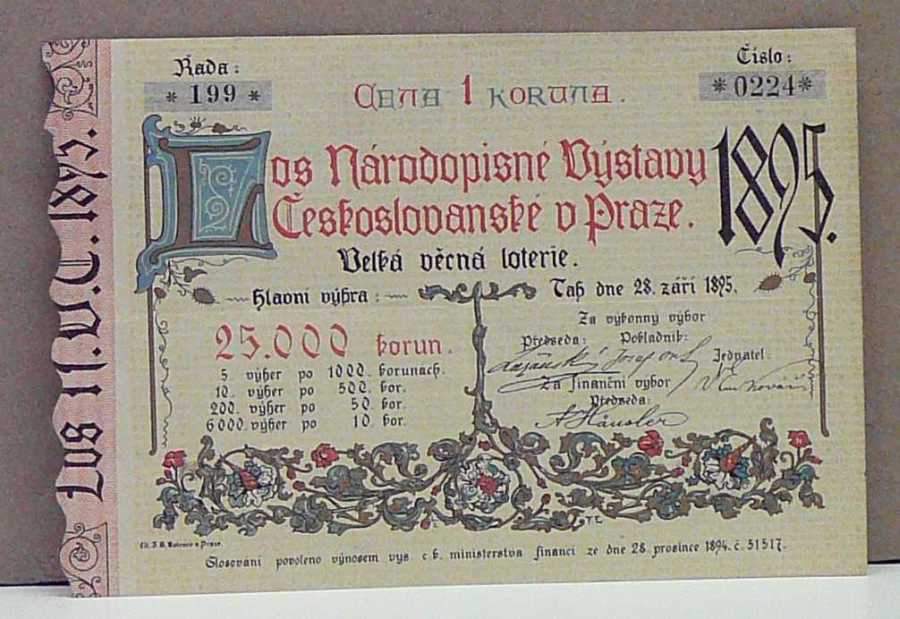 Řada:
* 199 *
Číslo:
*0224*
Cena 1 koruna.
Los Národopisné Výstavy
Českoslovanské v Praze.
1895.
Velká věcná loterie.
Hlavní výhra:
Tah dne 28. září 1895.
25.000 korun.
5 výher po 1000 korunách.
10 výher po 500 kor.
200 výher po 50 kor.
6000 výher po 10 kor.
Za výkonný výbor
Předseda: Pokladník:
Jednatel:
Za finanční výbor
Předseda:
Slosování povoleno výnosem vys. c.k. ministerstva financí ze dne 28. prosince 1894. č. 51517.